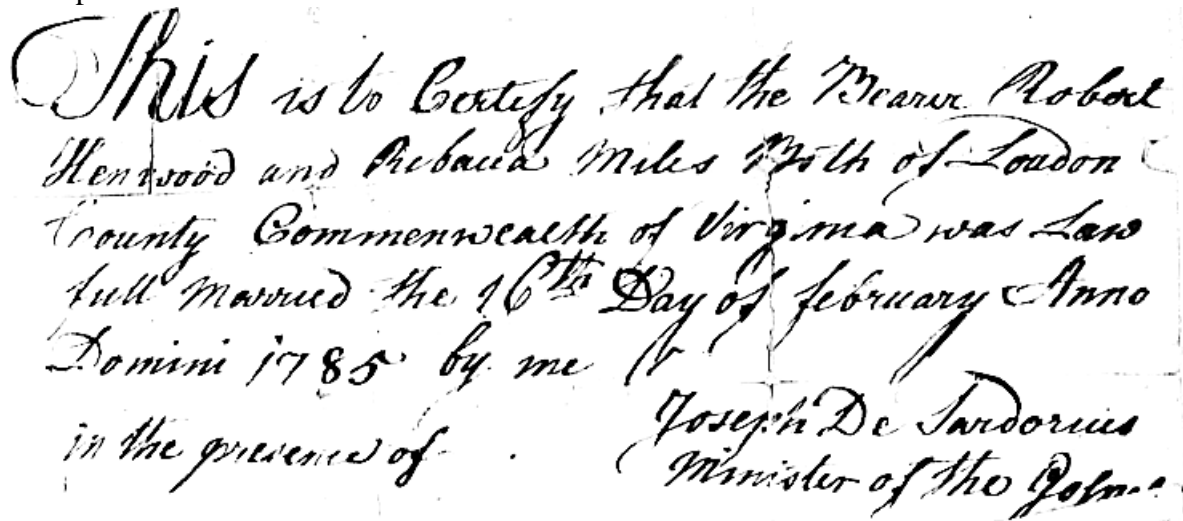 This is to Certify that the Bearer Robert
Henwood and Rebacca Miles Both of Loudon
County Commenwealth of Virginia was Law
full Married the 16th Day of february Anno
Domini 1785 by me
Joseph De Sardorius
in the presence of
Minister of the